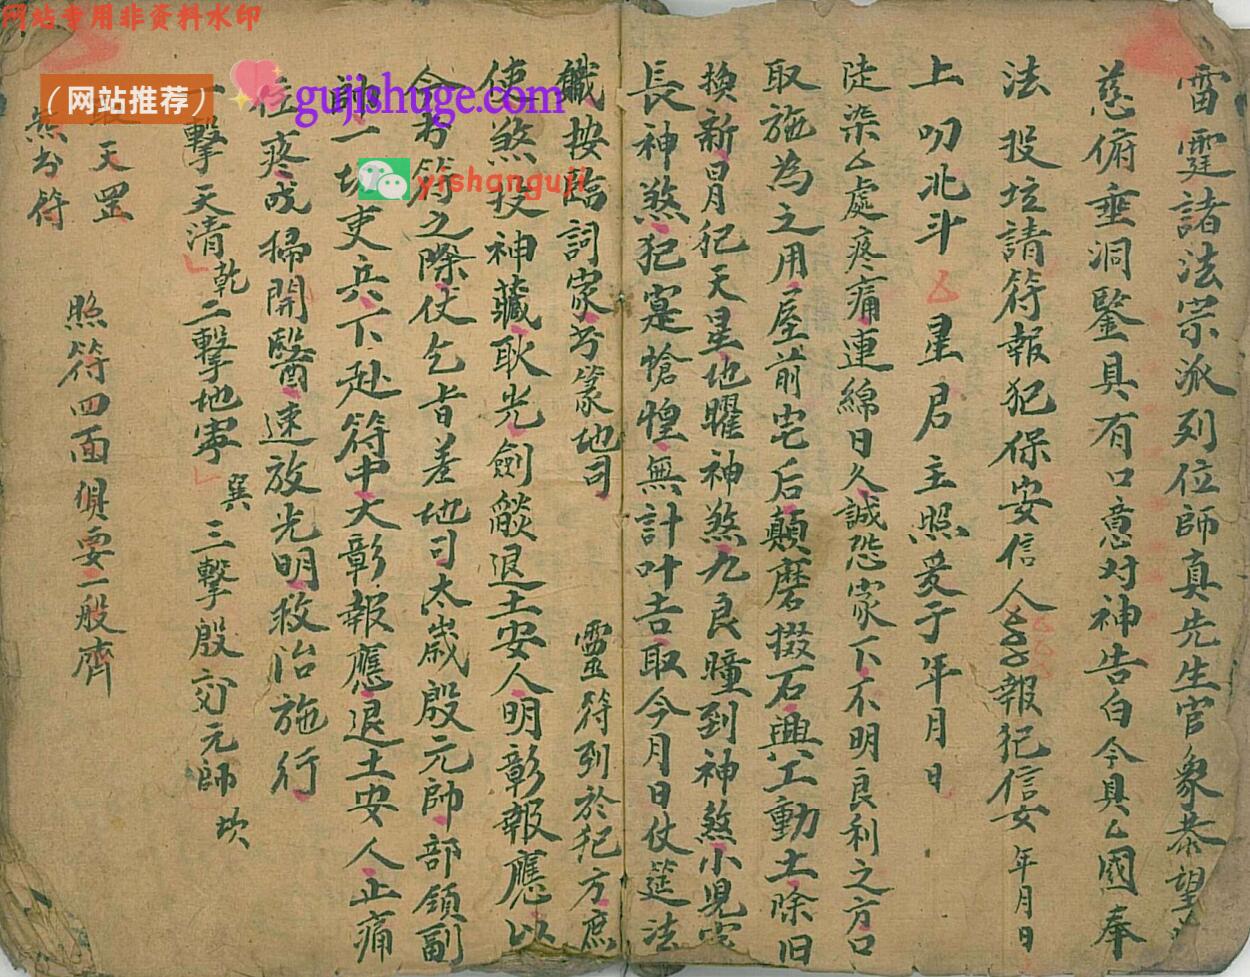 网站专用非资料水印
（网站推荐）
gujishuge.com
yishanguji
雷霆諸法宗派列位師真先生官象恭望
慈俯垂洞鑒具有口意对神告白今具厶國奉
法投坛請符報犯保安信人 報犯信女 年月日
上叩北斗厶星君主照爰于年月日
陡染厶處疼痛連綿日久誠恐家下不明良利之方口
取施為之用屋前宅后顛磨掇石興工動土除旧
換新冐犯天星地曜神煞九良瞳到神煞小児
長神煞犯寔愴惶無計叶吉取今月日仗筵法
職按臨詞家 篆地司 靈符列於犯方庶
使煞投神藏耿光劍燄退土安人明彰報應以
今 符之際仗乞旨差地司太歲殷元帥部領副
帥一切吏兵下赴符中大彰報應退土安人止痛
位疼成掃開醫速放光明救治施行
一擊天清乾二擊地寧巽三擊殷交元帥坎
天罡 照符四面俱要一般齊
符